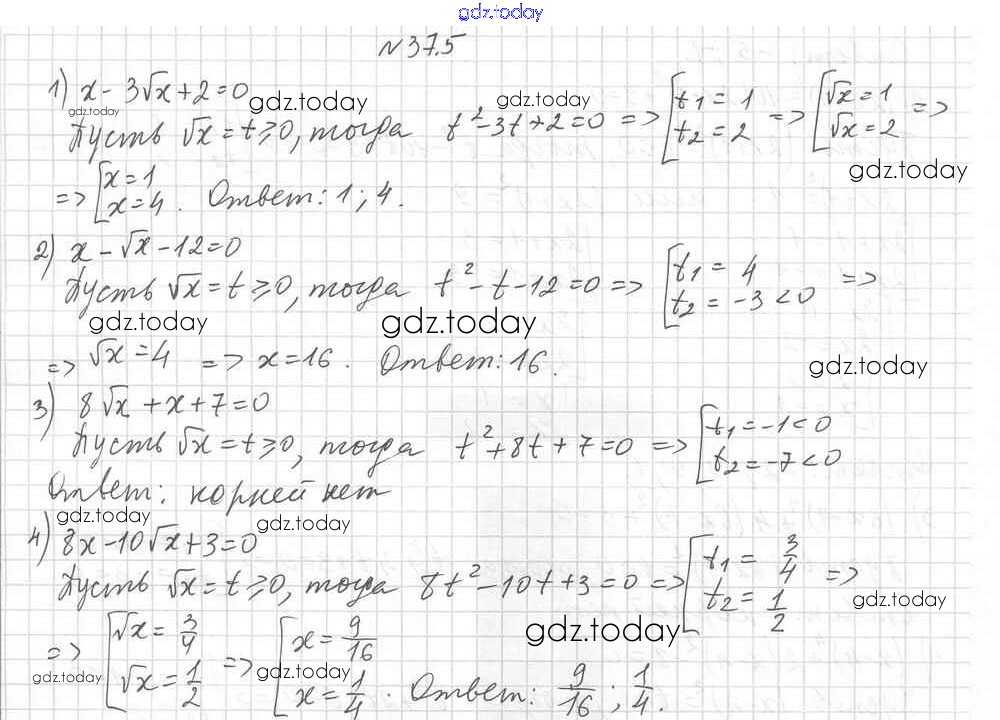 gdz.today
№37.5
1) x - 3√x + 2 = 0
gdz.today gdz.today gdz.today
Пусть √x = t ≥ 0, тогда t² - 3t + 2 = 0 => [t₁ = 1 t₂ = 2 => [√x = 1 √x = 2 =>
gdz.today
=> [x = 1 x = 4. Ответ: 1; 4.
2) x - √x - 12 = 0
Пусть √x = t ≥ 0, тогда t² - t - 12 = 0 => [t₁ = 4 t₂ = -3 < 0 =>
gdz.today gdz.today
=> √x = 4 => x = 16. Ответ: 16.
gdz.today
3) 8√x + x + 7 = 0
Пусть √x = t ≥ 0, тогда t² + 8t + 7 = 0 => [t₁ = -1 < 0 t₂ = -7 < 0
Ответ: корней нет
gdz.today gdz.today
4) 8x - 10√x + 3 = 0
Пусть √x = t ≥ 0, тогда 8t² - 10t + 3 = 0 => [t₁ = 3/4 t₂ = 1/2 =>
gdz.today gdz.today
=> [√x = 3/4 √x = 1/2 => [x = 9/16 x = 1/4. Ответ: 9/16; 1/4.
gdz.today gdz.today